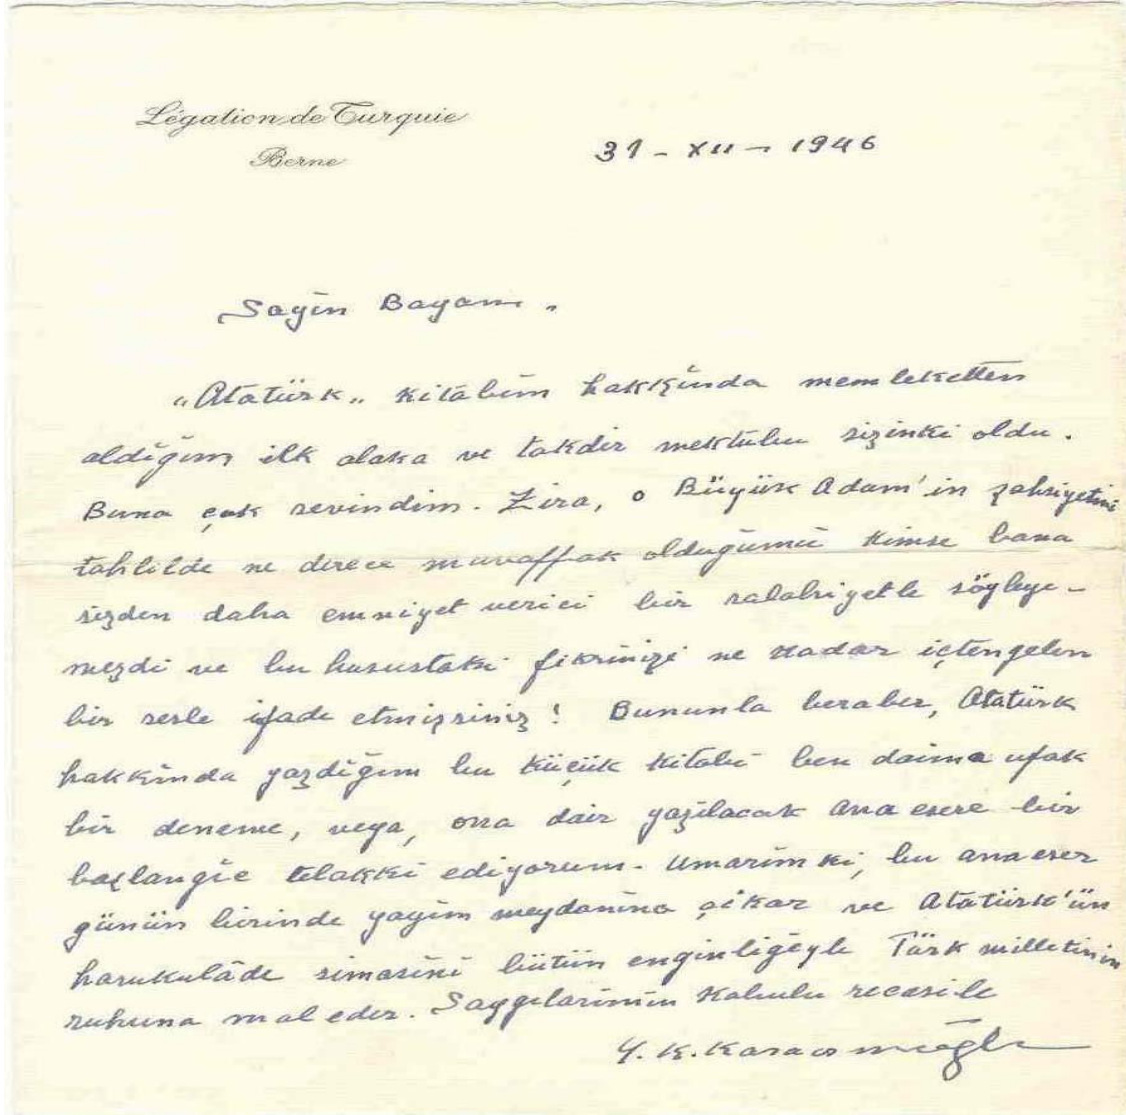 Légation de Turquie
Berne
31 - XII - 1946
Sayın Bayan,
"Atatürk" kitabım hakkında memleketten
aldığım ilk alaka ve takdir mektubu sizinki oldu.
Buna çok sevindim. Zira, o Büyük Adam'ın şahsiyetini
tahlilde ne derece muvaffak olduğumu kimse bana
sizden daha emniyet verici bir salahiyetle söyleye-
mezdi ve bu husustaki fikrinizi ne kadar içten gelen
bir sesle ifade etmişsiniz! Bununla beraber, Atatürk
hakkında yazdığım bu küçük kitabı ben daima ufak
bir deneme, veya, ona dair yazılacak ana esere bir
başlangıç telakki ediyorum. Umarım ki, bu ana eser
günün birinde yayım meydanına çıkar ve Atatürk'ün
harukulâde simasını bütün enginliğiyle Türk milletinin
ruhuna mal eder. Saygılarımın kabulu recasile
Y. K. Karaosmanoğlu